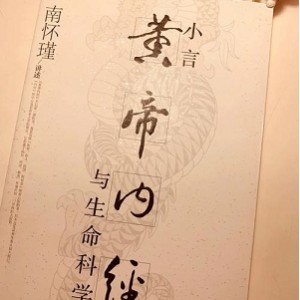 小言
黄帝内经
与生命科学
南怀瑾/讲述